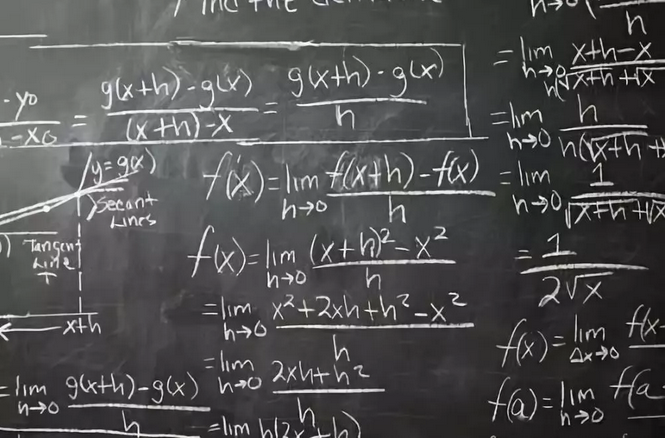 Find the
g(x+h)-g(x) / (x+h)-x = g(x+h)-g(x) / h
y=g(x)
Secant
Lines
Tangent
Line
T
x+h
= lim h→0 g(x+h)-g(x) / h
f'(x)= lim h→0 f(x+h)-f(x) / h
f(x)= lim h→0 (x+h)²-x² / h
= lim h→0 x²+2xh+h²-x² / h
= lim h→0 2xh+h² / h
= lim h(2x+h)
h→0 h
= lim h→0 x+h-x / h√x+h+√x
= lim h→0 h / h(√x+h+
= lim h→0 1 / √x+h+√x
= 1 / 2√x
f(x)= lim Δx→0 f(x-
f(a)= lim h→0 f(a-